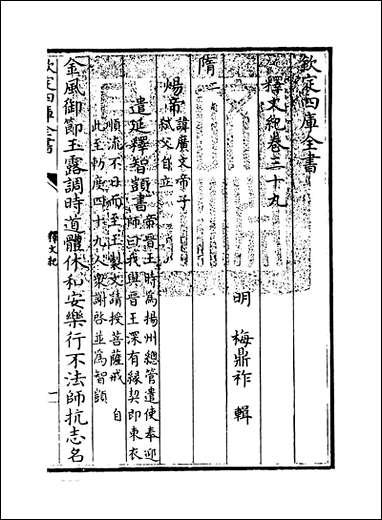 欽定四庫全書
釋文紀卷三十九
明 梅鼎祚 輯
隋二
煬帝 諱廣文帝子
弑父自立
遣延釋智顗書 帝晉王時為揚州總管遣使奉迎
師曰我與晉王深有緣契即束衣
順流不日而至王製文請授菩薩戒 自
此至斬度四十九人衆謝啓並為智顗
金風御節玉露調時道體休和安樂行不法師抗志名
欽定四庫全書
釋文紀
一